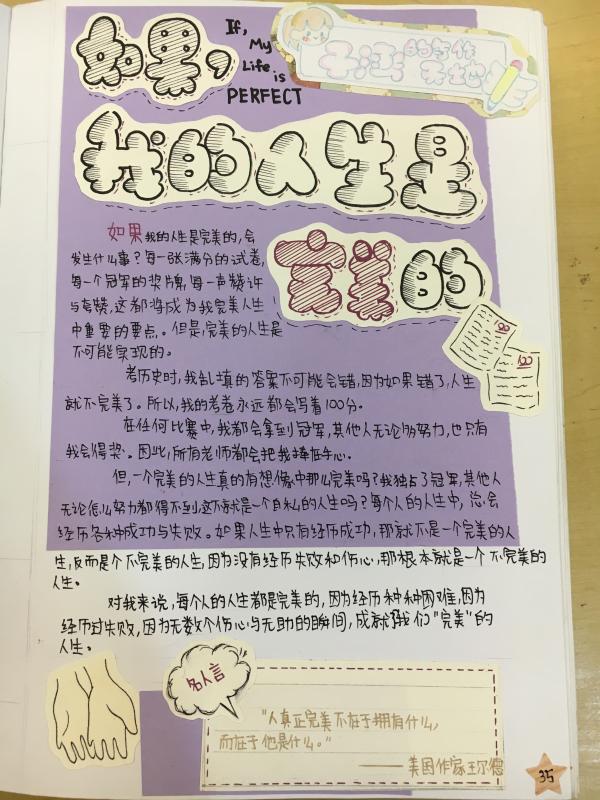 如果，
If,
My
Life
is
PERFECT
的写作
天地
我的人生是
完美的
如果我的人生是完美的，会
发生什么事？每一张满分的试卷，
每一个冠军的奖牌，每一声赞许
与夸赞，这都将成为我完美人生
中重要的要点。但是，完美的人生是
不可能实现的。
考历史时，我乱填的答案不可能会错，因为如果错了，人生
就不完美了。所以，我的考卷永远都会写着100分。
在任何比赛中，我都会拿到冠军，其他人无论多努力，也只有
我会得奖。因此，所有老师都会把我捧在手心。
但，一个完美的人生真的有想像中那么完美吗？我独占了冠军，其他人
无论怎么努力都得不到，这不就是一个自私的人生吗？每个人的人生中，总会
经历各种成功与失败。如果人生中只有经历成功，那就不是一个完美的人
生，反而是个不完美的人生，因为没有经历失败和伤心，那根本就是一个不完美的
人生。
对我来说，每个人的人生都是完美的，因为经历种种困难，因为
经历过失败，因为无数个伤心与无助的瞬间，成就了我们"完美"的
人生。
名人言
"人真正完美不在于拥有什么，
而在于他是什么。"
——美国作家王尔德
35